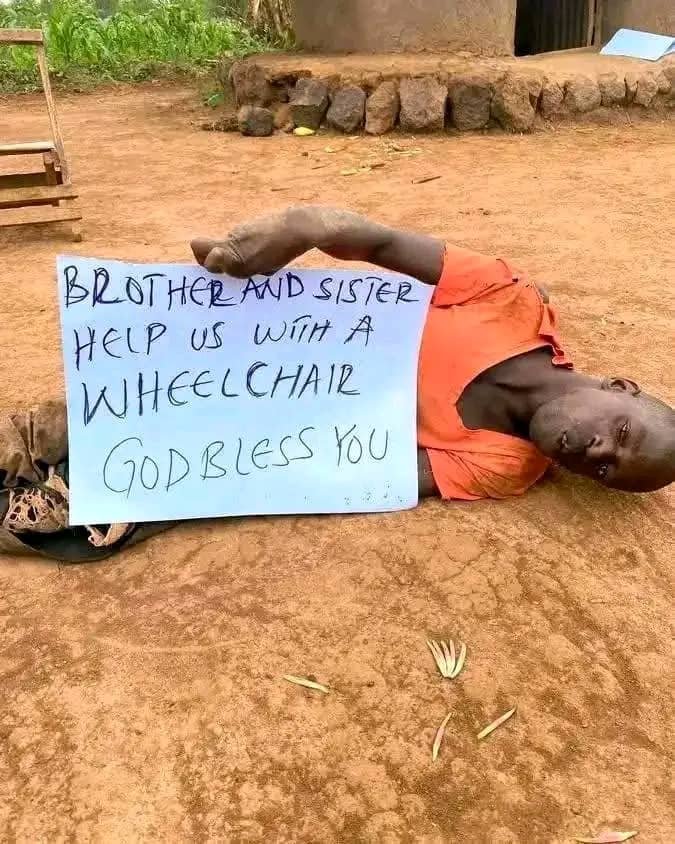 BROTHER AND SISTER
HELP US WITH A
WHEELCHAIR
GOD BLESS YOU